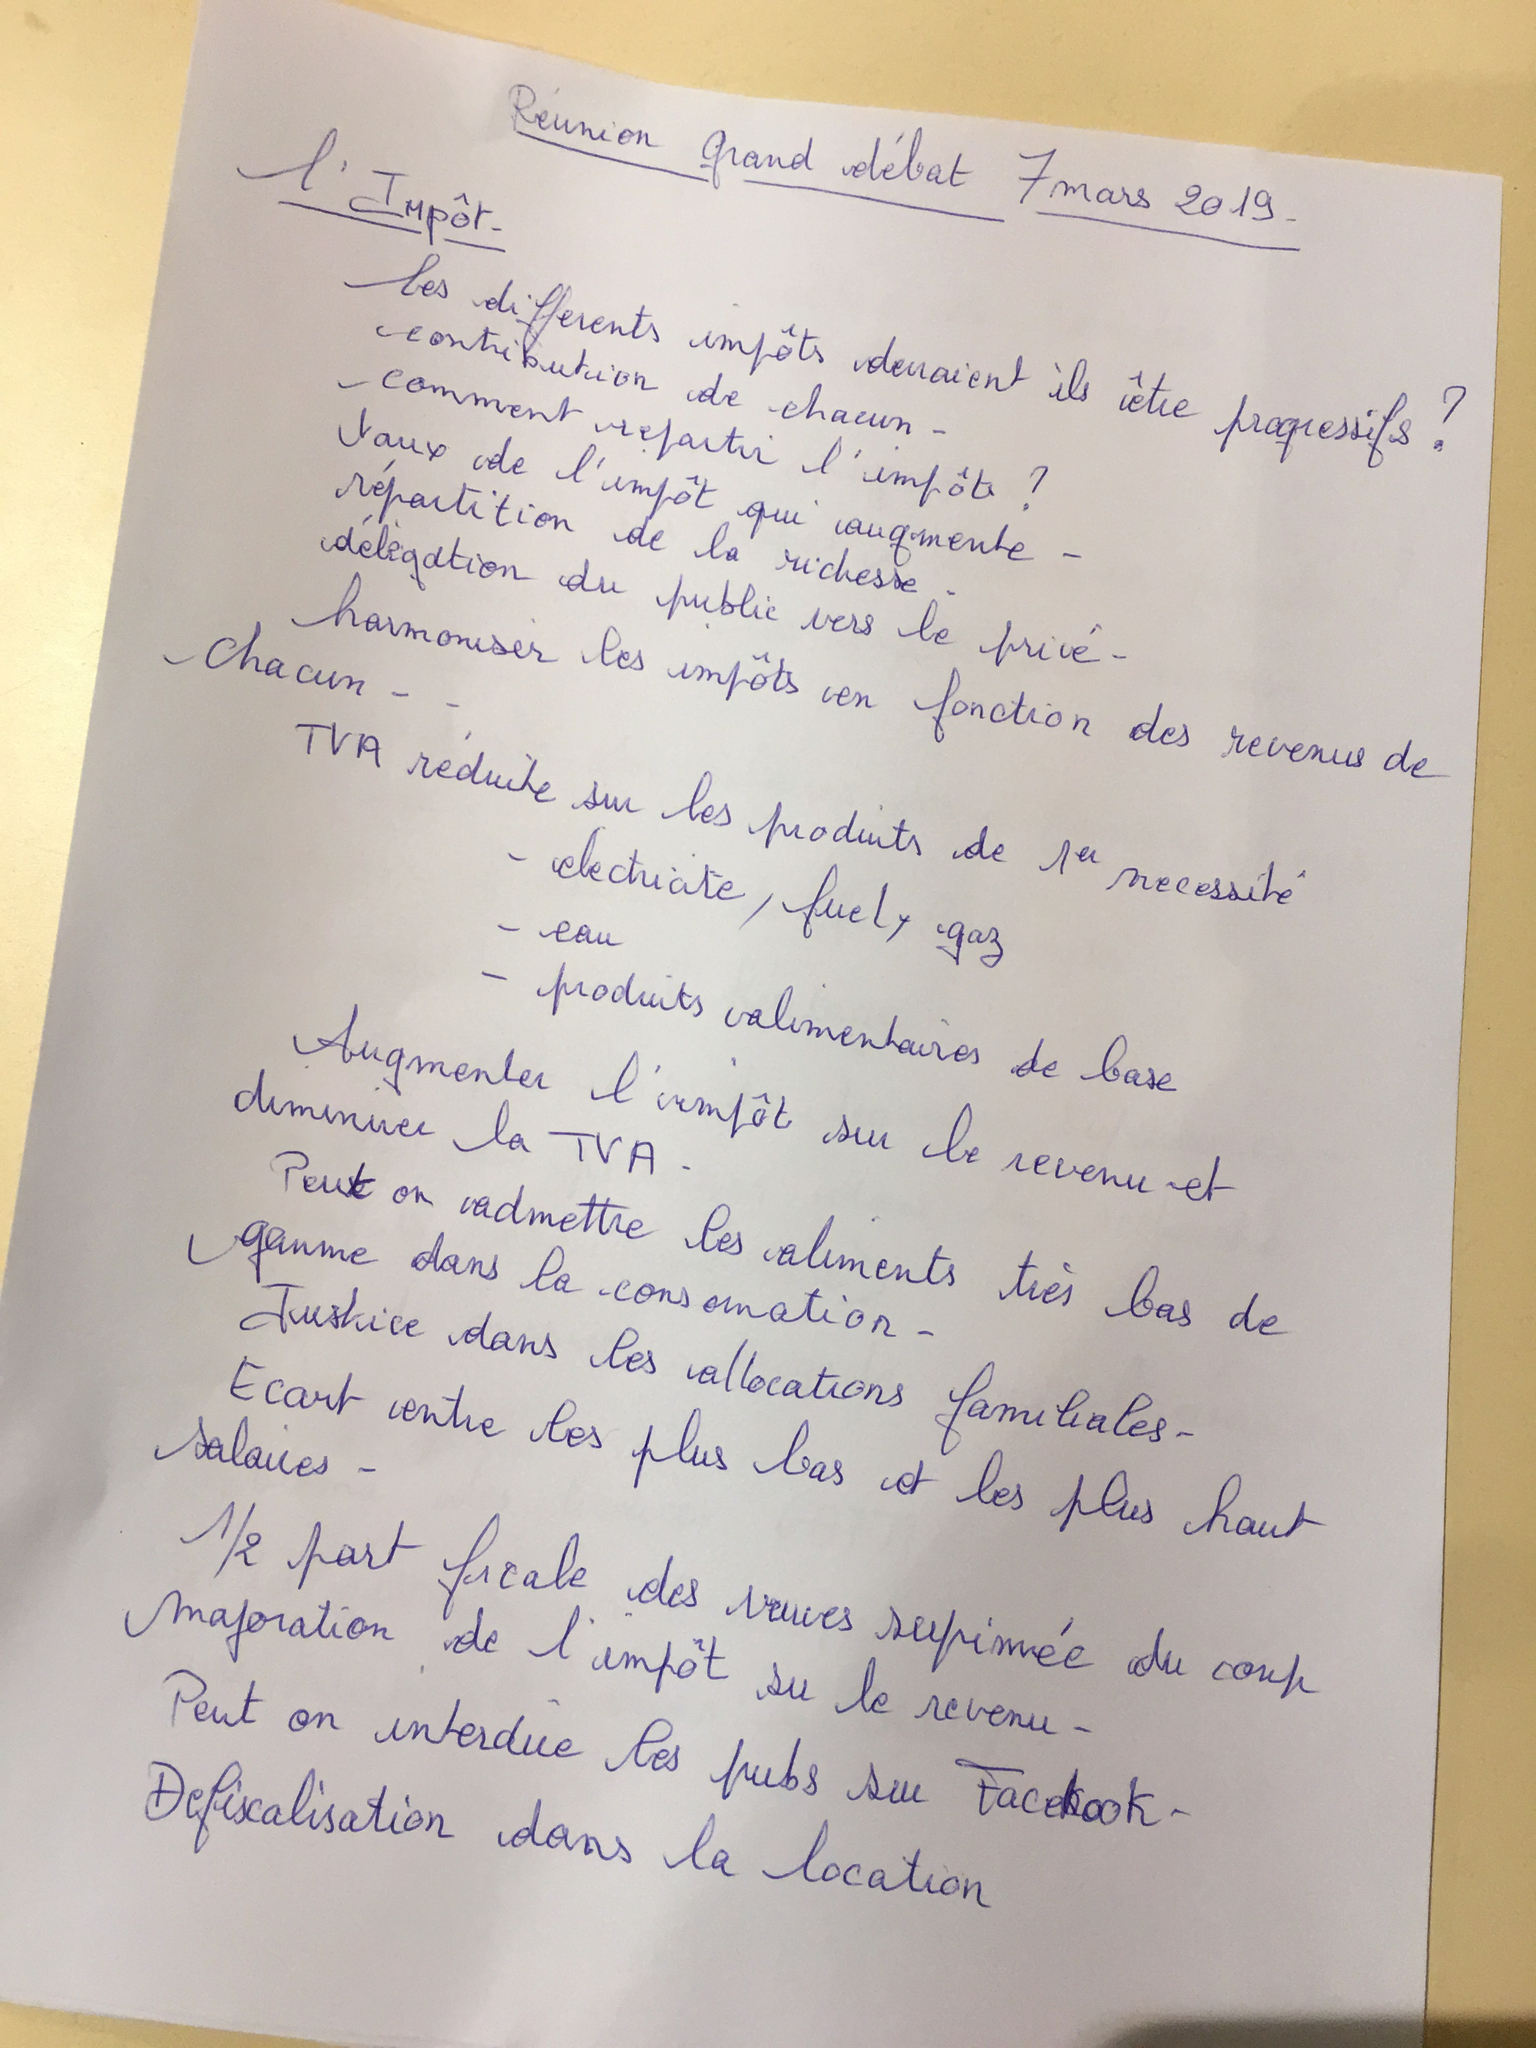 Réunion grand débat 7 mars 2019 -
l'Impôt -
les differents impôts devraient ils être progressifs ?
contribution de chacun -
comment repartir l'impôt ?
taux de l'impôt qui augmente -
répartition de la richesse -
délégation du public vers le privé -
harmoniser les impôts en fonction des revenus de
chacun - -
TVA réduite sur les produits de 1er necessité
- electricite, fuel, gaz
- eau
- produits alimentaires de base
Augmenter l'impôt sur le revenu et
diminuer la TVA -
Peut on admettre les aliments très bas de
gamme dans la consomation -
Justice dans les allocations familiales -
Ecart entre les plus bas et les plus haut
salaires -
1/2 part fiscale des veuves supimée du coup
majoration de l'impôt su le revenu -
Peut on interdire les pubs sur Facebook -
Défiscalisation dans la location